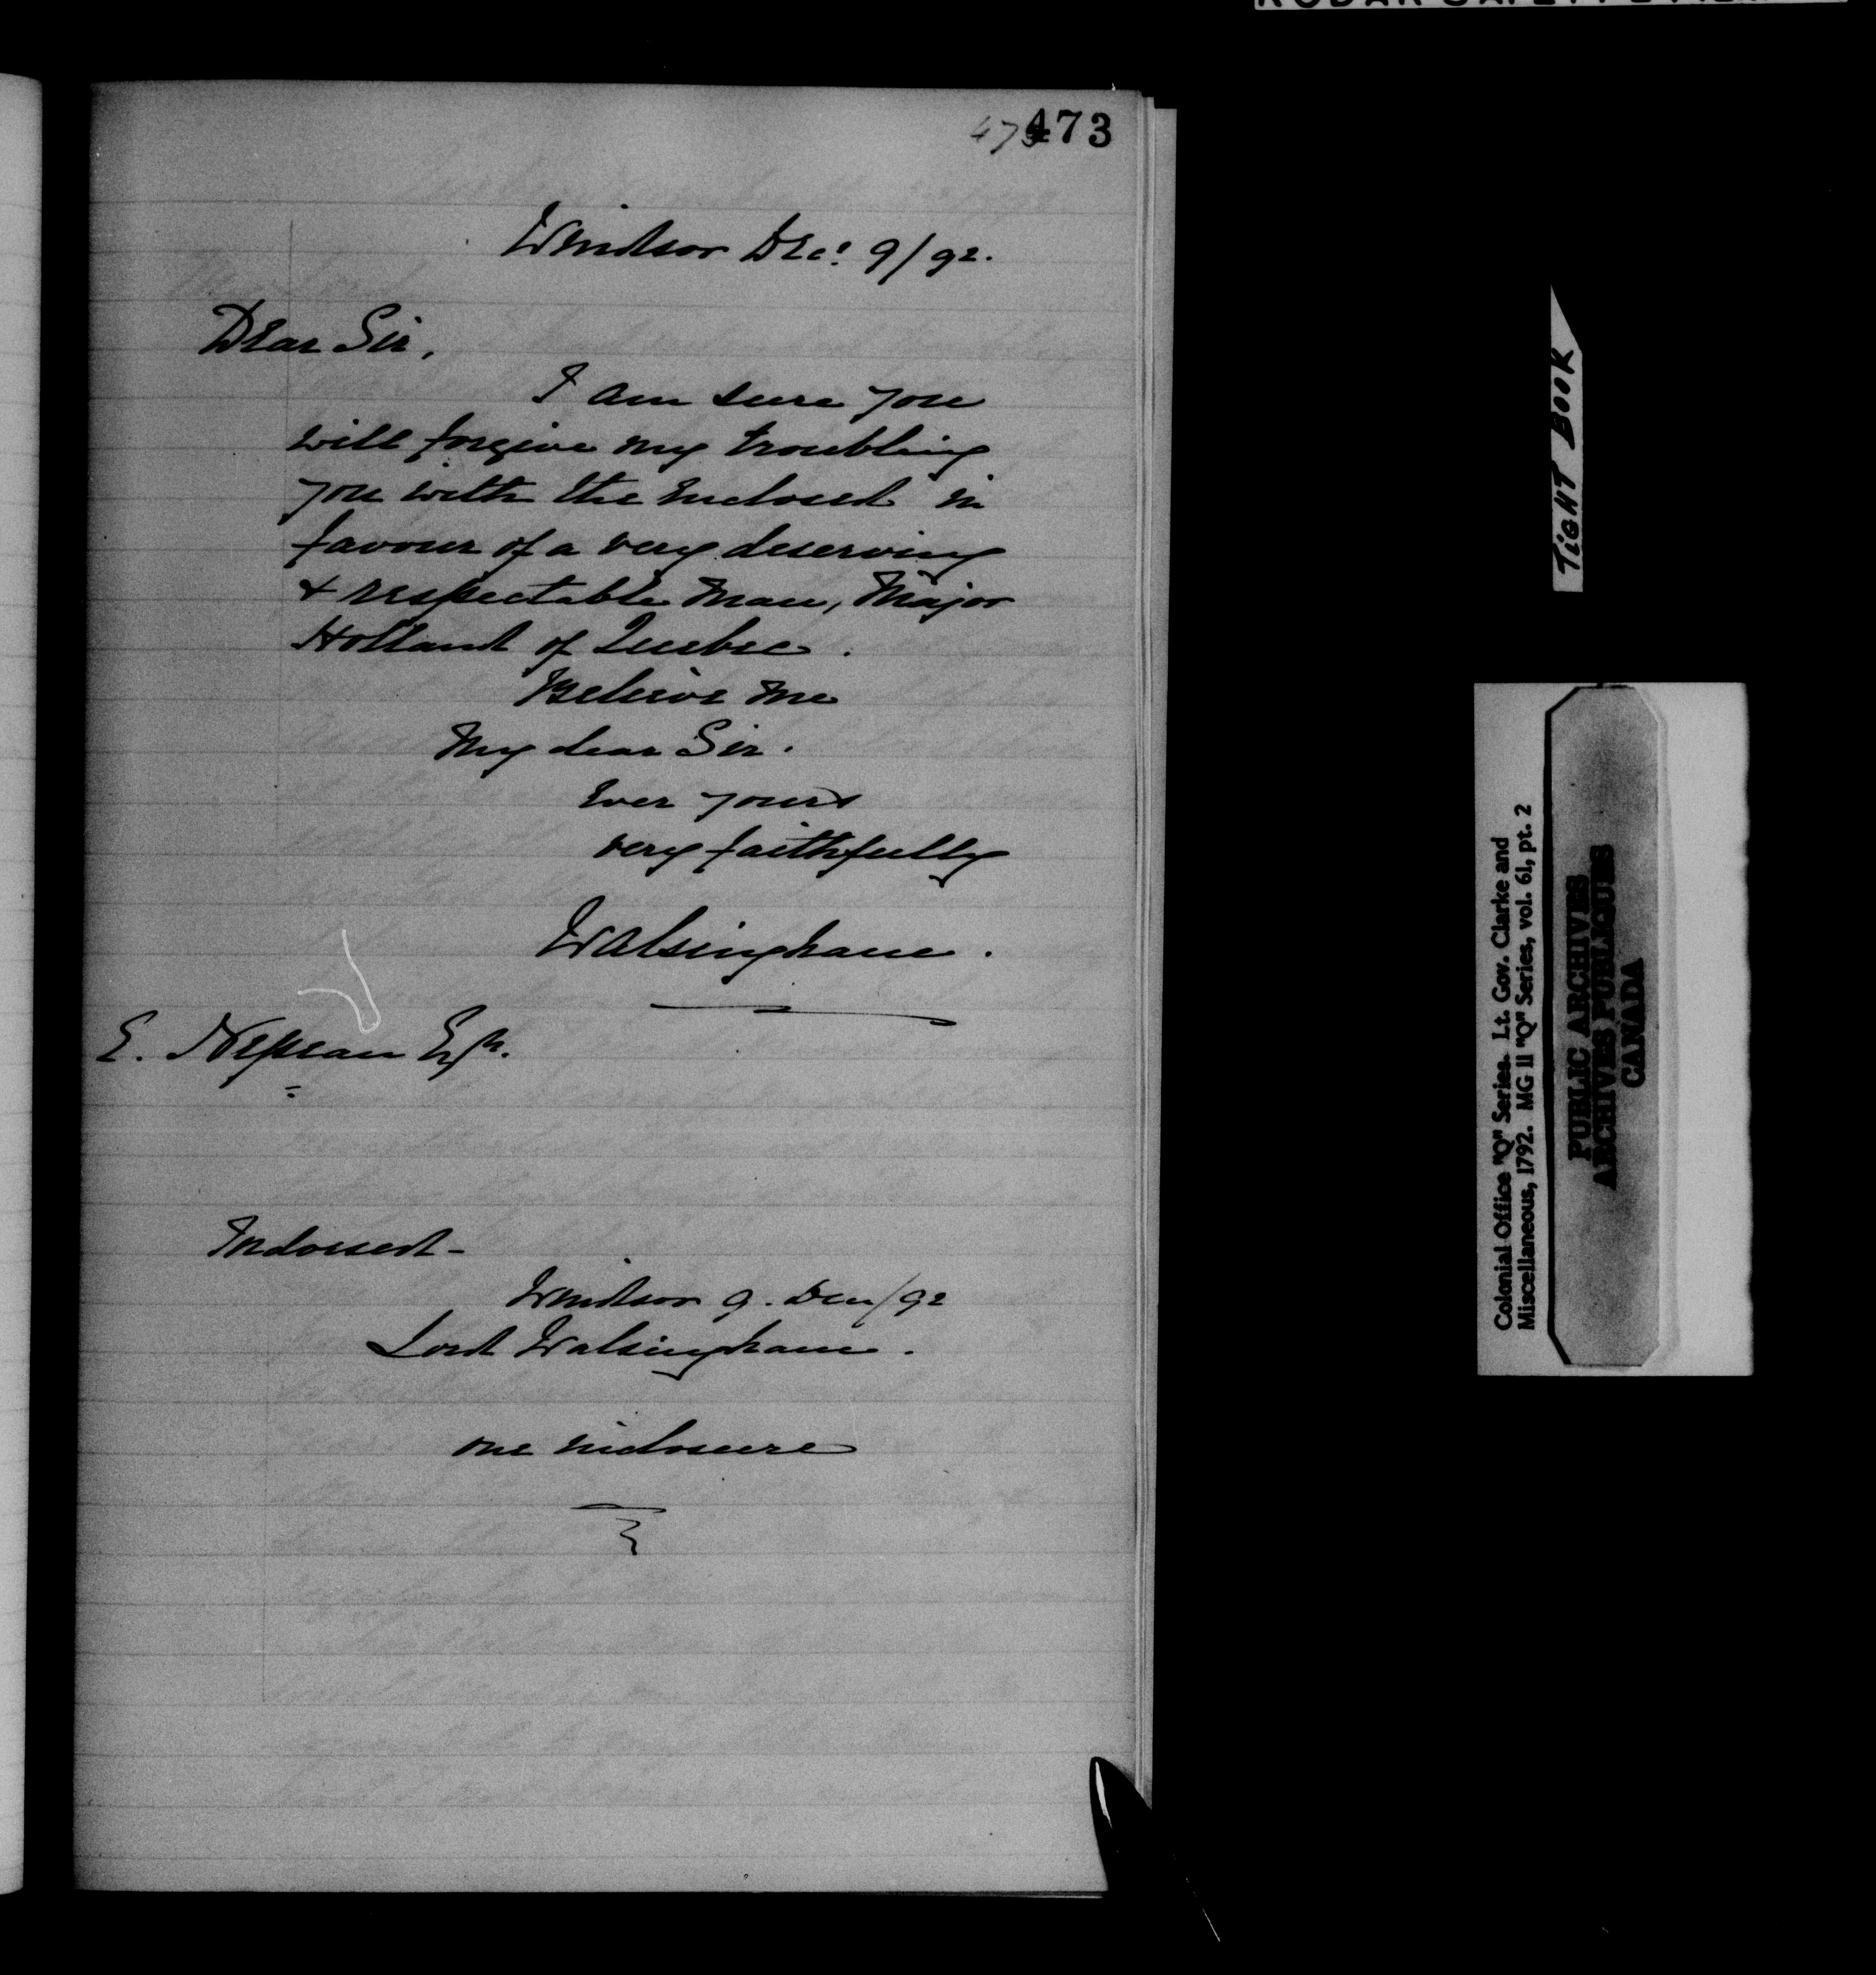 473
473
Windsor Dec: 9/92.
Dear Sir,
I am sure you
will forgive my troubling
you with the enclosed in
favour of a very deserving
& respectable man, Major
Holland of Quebec.
Believe me
My dear Sir.
Ever yours
very faithfully
Walsingham.
E. Nepean Esqr.
Indorsed-
Windsor 9. Decr/92
Lord Walsingham.
one inclosure
TIGHT BOOK
Colonial Office "Q" Series. Lt. Gov. Clarke and
Miscellaneous, 1792. MG 11 "Q" Series, vol. 61, pt. 2
PUBLIC ARCHIVES
ARCHIVES PUBLIQUES
CANADA